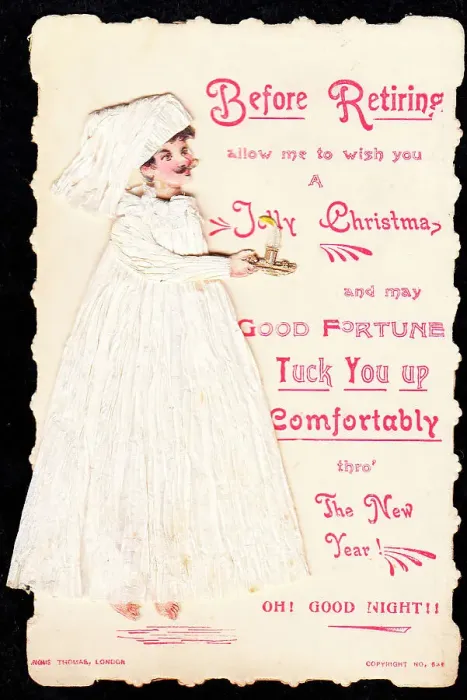 Before Retiring
allow me to wish you
A
Jolly Christmas
and may
GOOD FORTUNE
Tuck You up
Comfortably
thro'
The New
Year!
OH! GOOD NIGHT!!
ANGUS THOMAS, LONDON
COPYRIGHT NO.